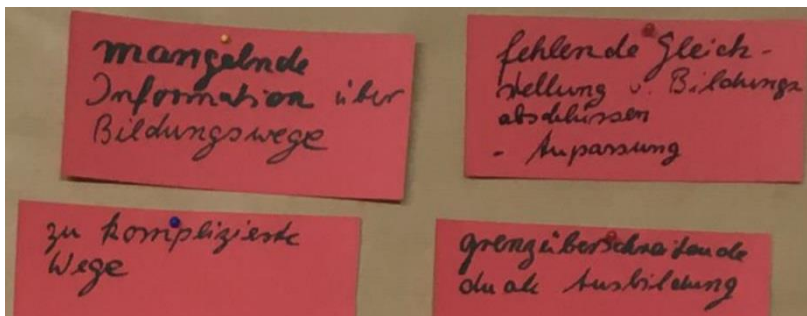 mangelnde
Information über
Bildungswege
fehlende Gleich-
stellung v. Bildungs
abschlüssen
- Anpassung
zu komplizierte
Wege
grenzüberschreitende
duale Ausbildung